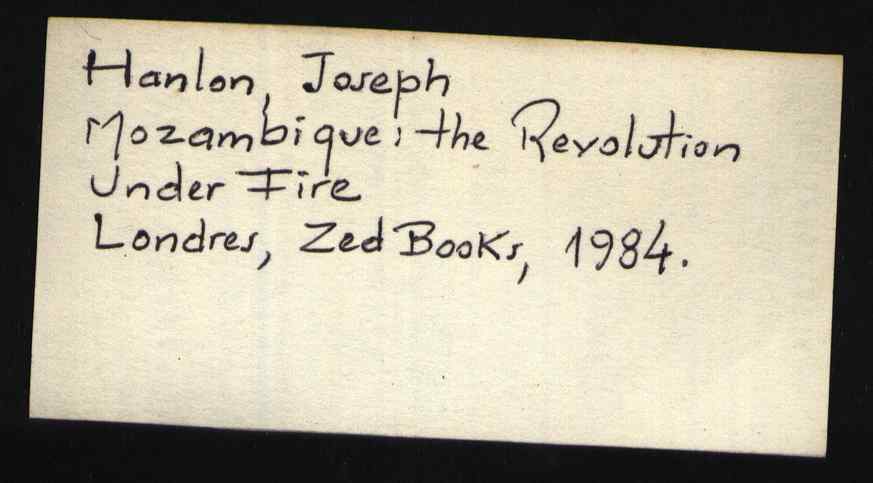 Hanlon, Joseph
Mozambique: the Revolution
Under Fire
Londres, Zed Books, 1984.